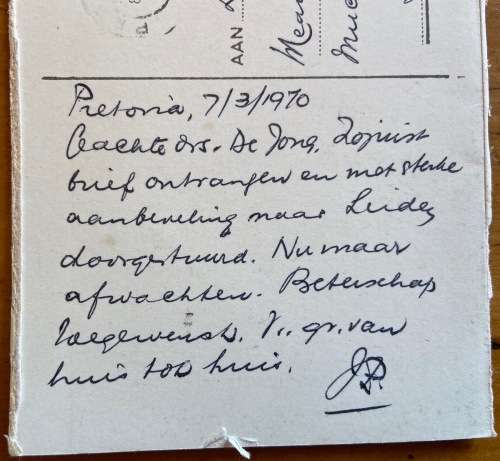 AAN
Mea
Muc
Pretoria, 7/3/1970
Geachte drs. De Jong. Zojuist
brief ontvangen en met sterke
aanbeveling naar Leiden
doorgestuurd. Nu maar
afwachten. Beterschap
toegewenst. V. gr. van
huis tot huis.